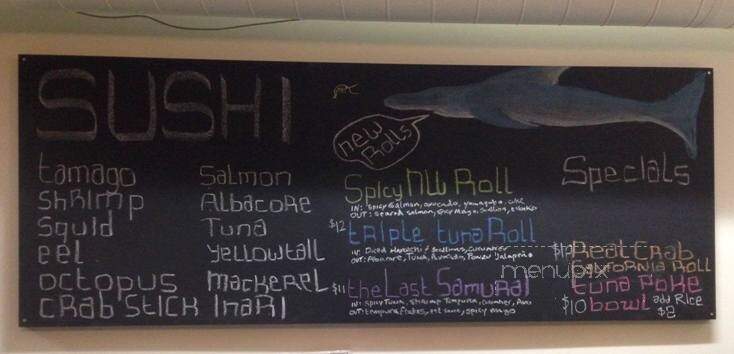 SUSHI
tamago
Shrimp
Squid
eel
octopus
CRab Stick
Salmon
Albacore
Tuna
Yellowtail
Mackerel
Inari
new Rolls
Spicy NW Roll
IN: Spicy Salmon, avocado,
OUT: Seared Salmon, Spicy Mayo, Scallion,
$12 triple tuna Roll
IN: Diced Hamachi & Scallions, Cucumber
OUT: Albacore, Tuna, Avocado, Jalapeño
$11 the Last Samurai
IN: Spicy Tuna, Shrimp Tempura, Cucumber, Avo
OUT: tempura flakes, eel sauce, spicy mayo
Specials
Real Crab
California Roll
tuna Poke
$10 bowl add Rice $2
menupix